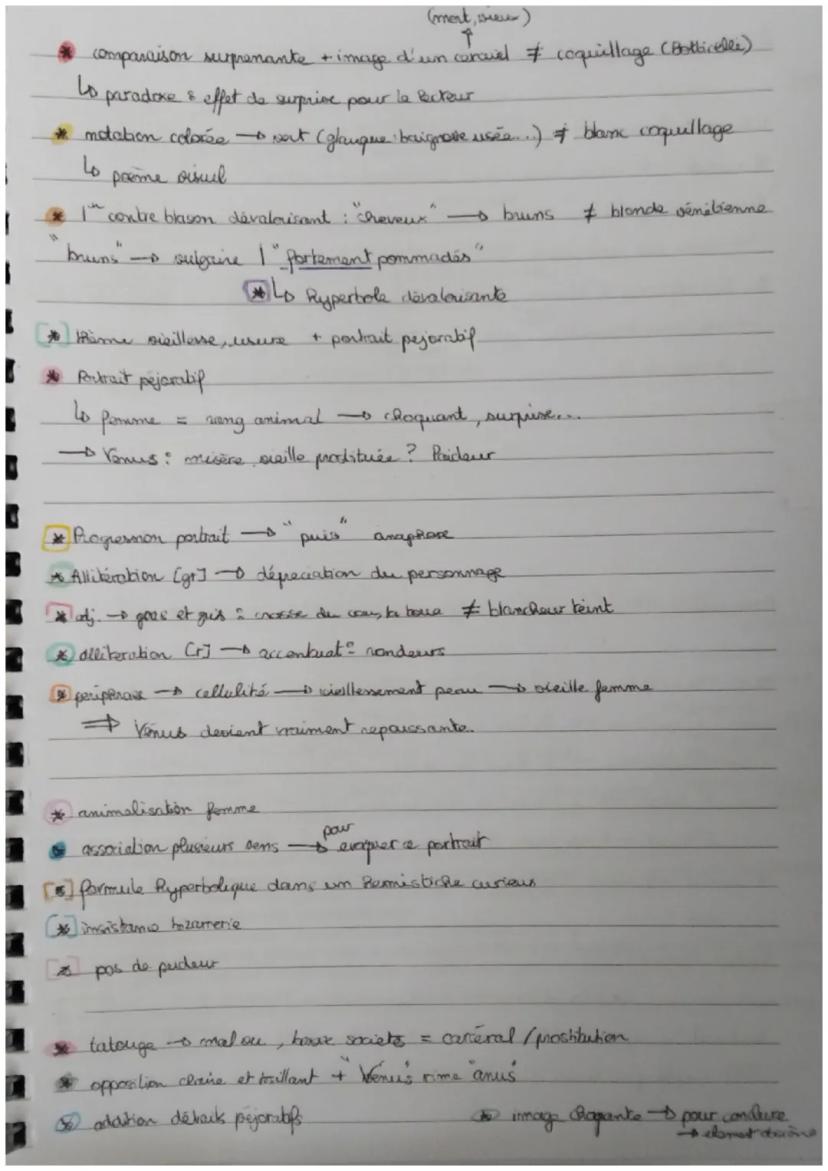 (mort, vieux)
* comparaison surprenante + image d'un cerceuil ≠ coquillage (Botticelli)
↳ paradoxe & effet de surprise pour le lecteur
* notation colorée → vert (glauque : baignoire usée...) ≠ blanc coquillage
↳ poème visuel
* 1er contre blason dévalorisant : "cheveux" → bruns ≠ blonde vénitienne
"bruns" → vulgaire / "fortement pommadés"
* ↳ Hyperbole dévalorisante
* thème vieillesse, usure + portrait pejoratif
* Portrait péjoratif
↳ femme = rang animal → choquant, surprise...
→ Vénus : misère, vieille prostituée ? Laideur
* Progression portrait → "puis" anaphore
* Allitération [gr] → dépréciation du personnage
* adj. → gras et gris : crasse du cou, la boue ≠ blancheur teint
* allitération [r] → accentuat° rondeurs
* périphrase → cellulite → vieillessement peau → vieille femme
⇒ Vénus devient vraiment repoussante.
* animalisation femme
* association plusieurs sens → pour évoquer ce portrait
* formule hyperbolique dans un hemistiche curieux
* insistance bizarrerie
* pas de pudeur
* tatouage → malou, basse société = carcéral / prostitution
* opposition claire et brillant + "Vénus" rime "anus"
* addition détails péjoratifs
* image choquante → pour conclure
→ élément